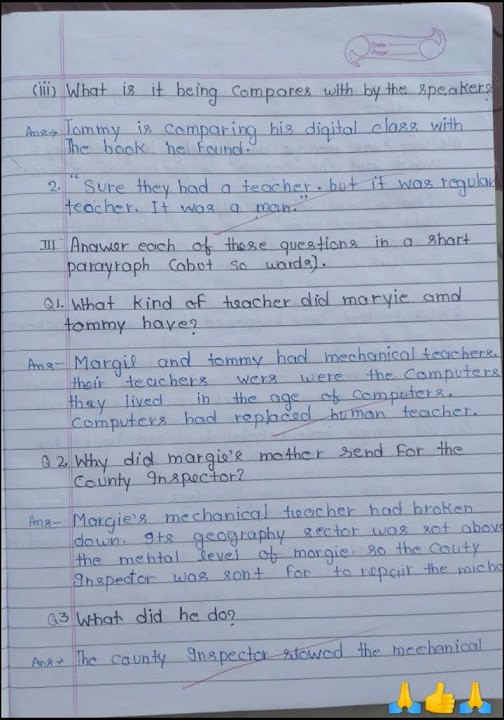 Date
Page
(iii) What is it being compares with by the speaker?
Ans→ Tommy is comparing his digital class with
The book he found.
2. "Sure they had a teacher. but it was regular
teacher. It was a man."
III. Answer each of these questions in a short
parayraph (abut so words).
Q1. What kind of teacher did maryie amd
tommy have?
Ans- Margil and tommy had mechanical teachers.
their teachers wers were the computers
they lived in the age of computers.
Computers had replaced human teacher.
Q 2. Why did margie's mother send for the
County Inspector?
Ans- Margie's mechanical teacher had broken
down. Its geography sector was sot above
the mehtal level of margie. so the couty
Inspector was sont for to repair the micha
Q.3 What did he do?
Ans→ The county Inspector slowed the mechanical